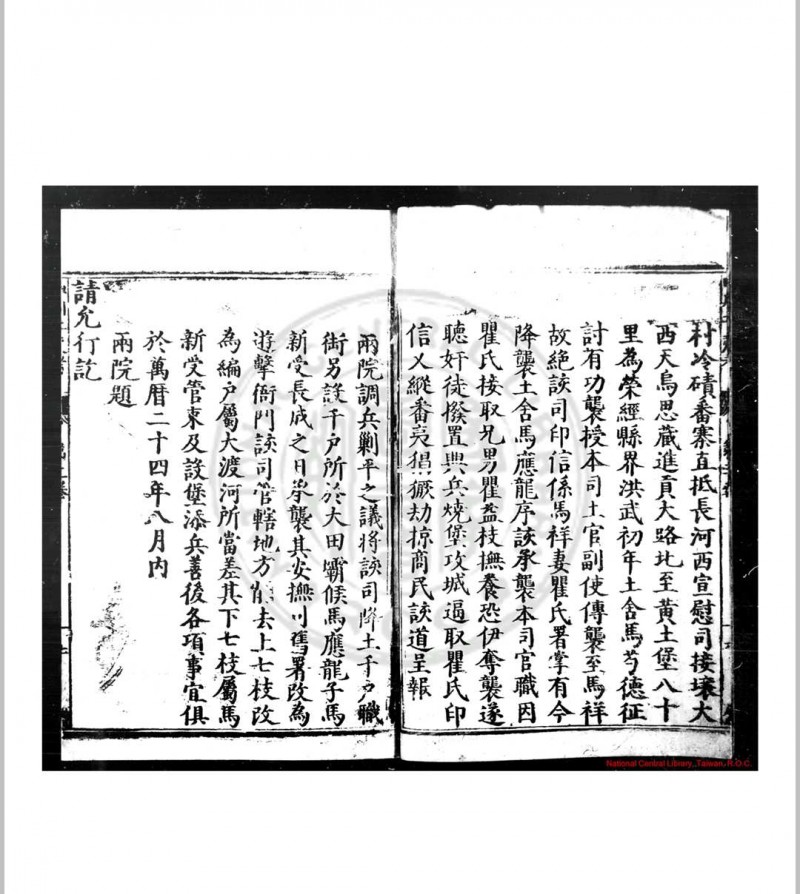 村冷磧番寨直抵長河西宣慰司接壤大
西天烏思藏進貢大路北至黃土堡八十
里為榮經縣界洪武初年土舍馬芍德征
討有功襲授本司土官副使傳襲至馬祥
故絕該司印信係馬祥妻瞿氏署掌有今
降襲土舍馬應龍序該承襲本司官職因
瞿氏接取兄男瞿益枝撫養恐伊奪襲遂
聽奸徒撥置興兵燒堡攻城逼取瞿氏印
信乂縱番夷猖獗劫掠商民該道呈報
兩院調兵剿平之議將該司降土千戶職
銜另設千戶所於大田霸候馬應龍子馬
新受長成之日承襲其安撫司舊署改為
遊擊衙門該司管轄地方削去上七枝改
為編戶屬大渡河所當差其下七枝屬馬
新受管束及設堡添兵善後各項事宜俱
於萬曆二十四年八月內
兩院題
請允行訖
National Central Library, Taiwan, R.O.C.